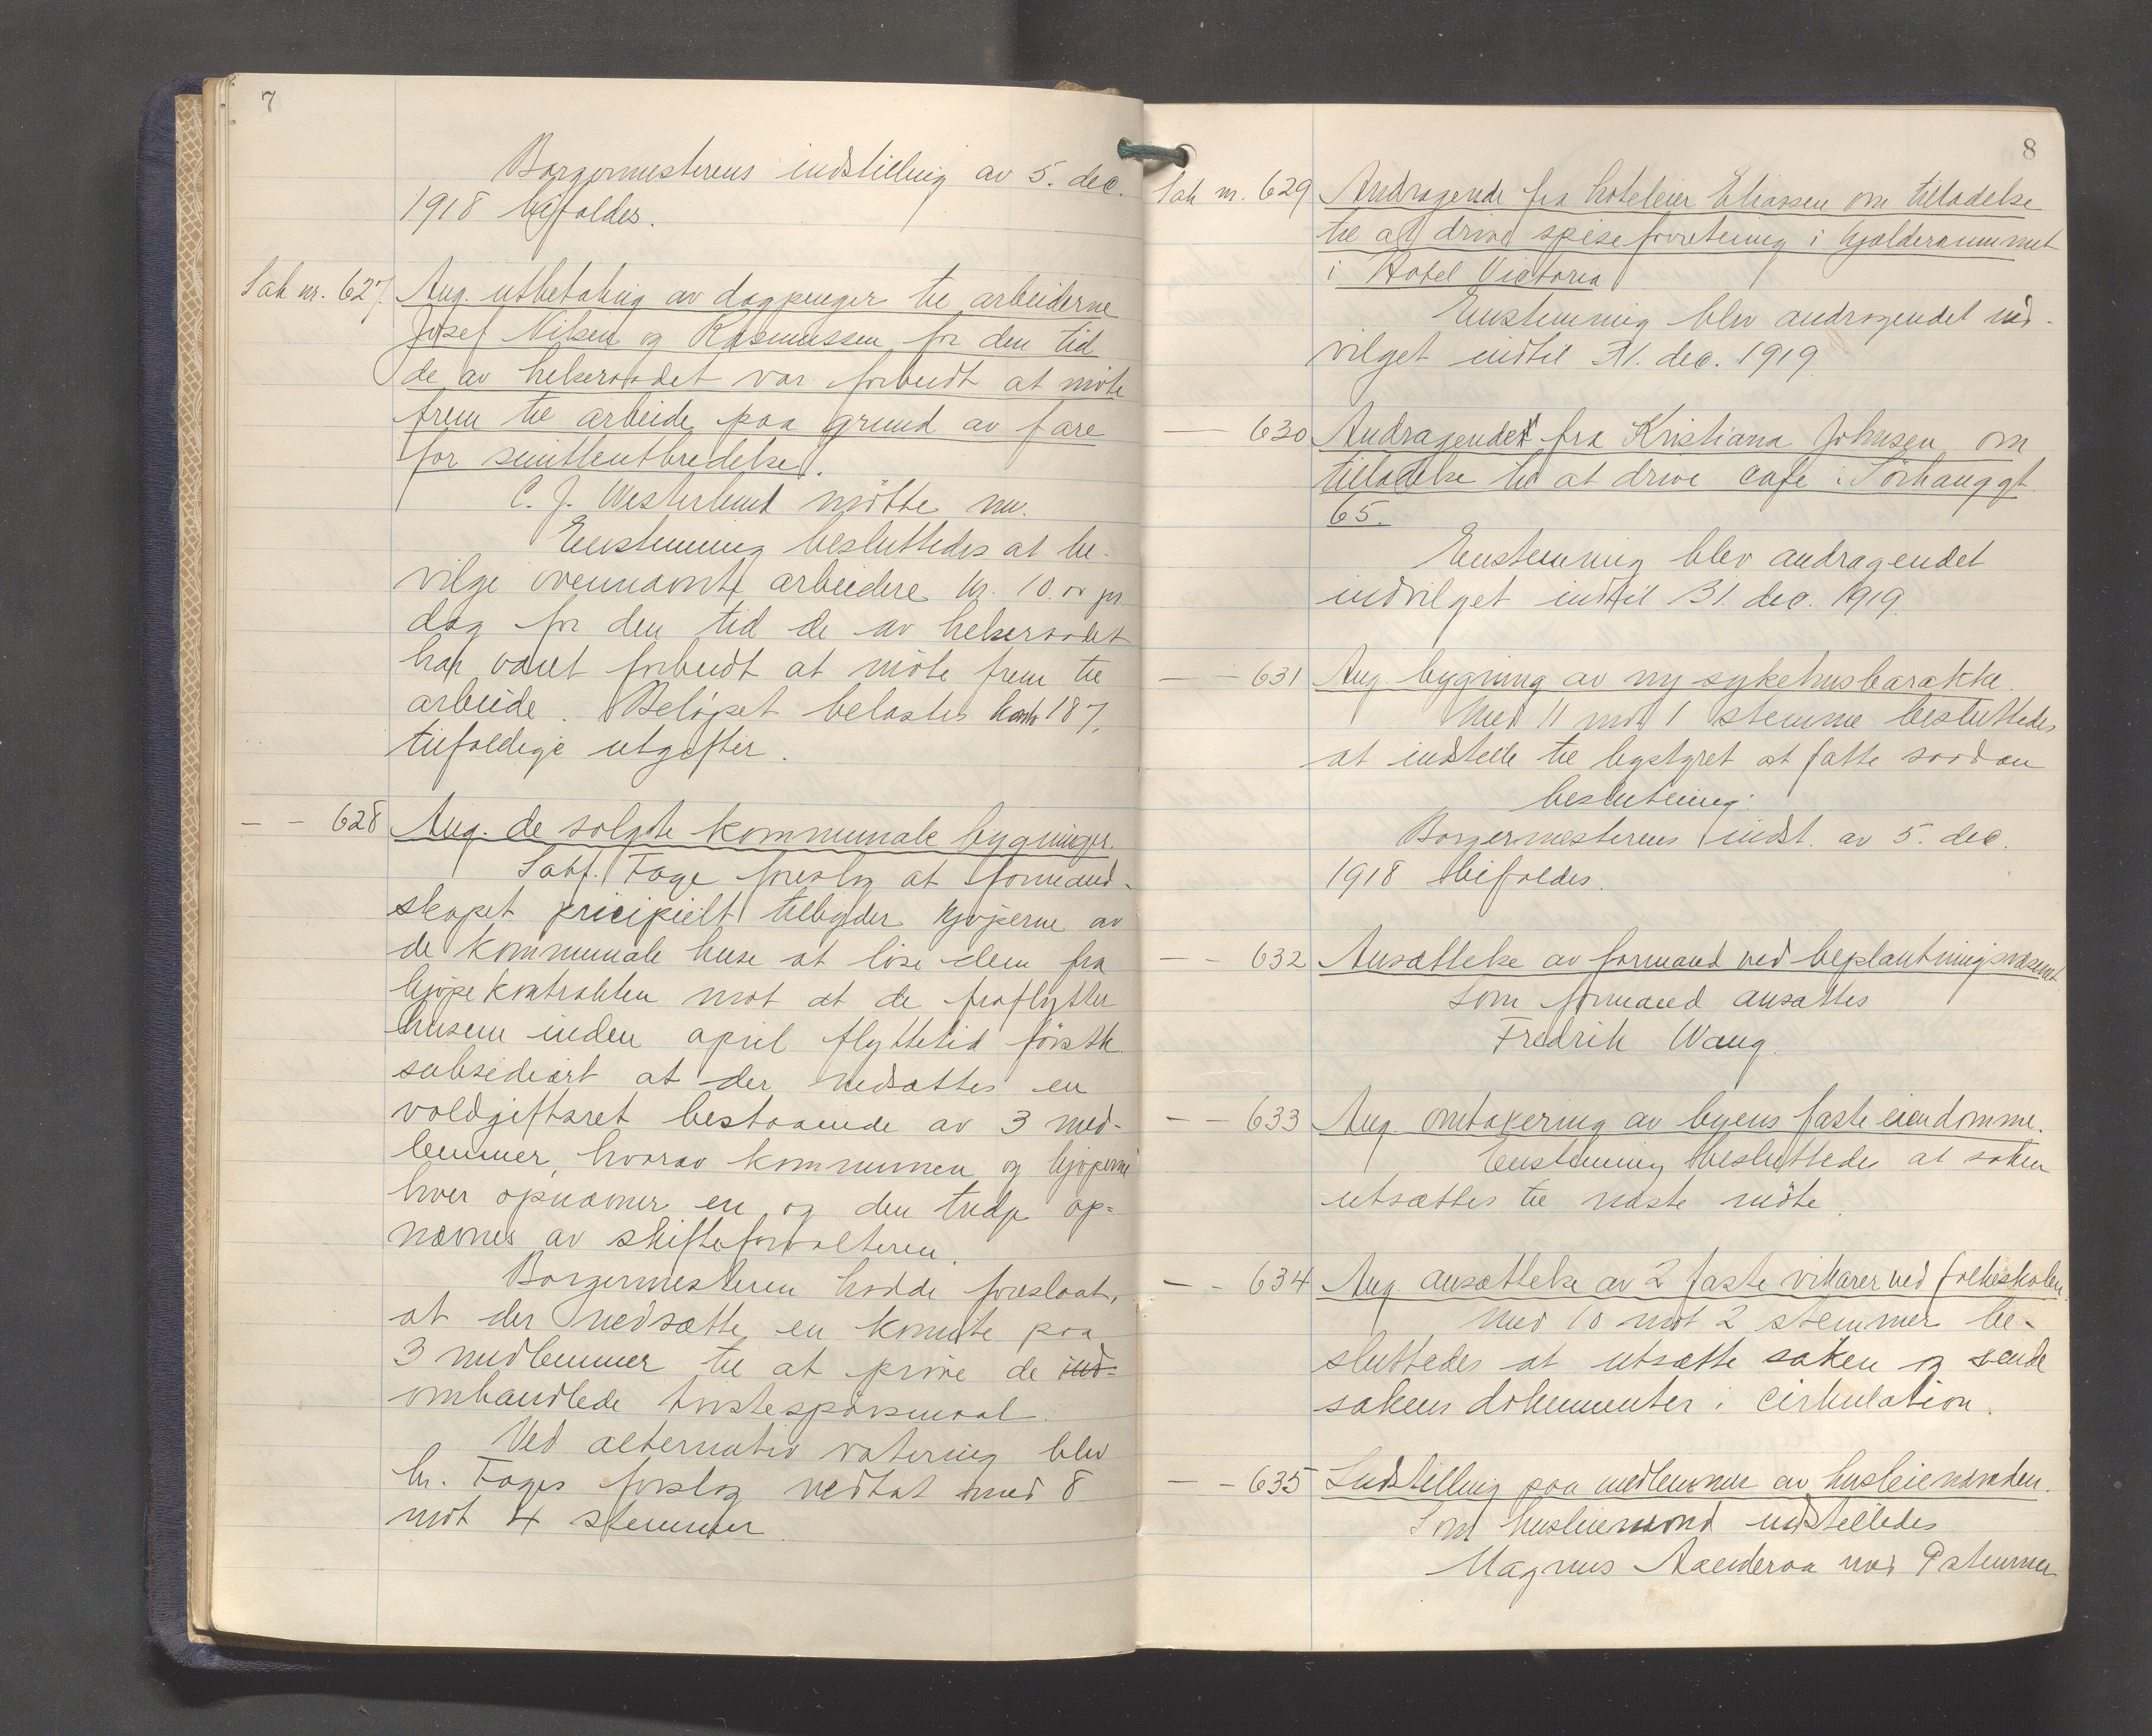 7
Borgermesterens indstilling av 5. dec.
1918 bifaldes.
Sak nr. 627. Ang. utbetaling av dagpenger til arbeiderne
Josef Nilsen og Rasmussen for den tid
de av helseraadet var forbudt at møte
frem til arbeide paa grund av fare
for smitteutbredelse.
C. J. Westerlund møtte nu.
Enstemmig besluttedes at be-
vilge ovennævnte arbeidere kr. 10.00 pr.
dag for den tid de av helseraadet
har været forbudt at møte frem til
arbeide. Beløpet belastes konto 187,
tilfældige utgifter.
- - 628 Ang. de solgte kommunale bygninger.
Sakf. Fage foreslog at formand-
skapet pricipielt tilbyder kjøperne av
de kommunale huse at løse dem fra
kjøpekontrakten mot at de fraflytter
husene inden april flyttetid førstk.
subsidiært at der nedsættes en
voldgiftsret bestaaende av 3 med-
lemmer, hvorav kommunen og kjøperne
hver opnævner en og den tredje op-
nævnes av skifteforvalteren.
Borgermesteren hadde foreslaat,
at der nedsatte en komite paa
3 medlemmer til at prøve de ind-
omhandlede tvistespørsmaal.
Ved alternativ votering blev
hr. Fages forslag vedtat med 8
mot 4 stemmer.
8
Sak nr. 629 Andragende fra hoteleier Eliassen om tilladelse
til at drive spiseforretning i kjælderrummet
i Hotel Victoria
Enstemmig blev andragendet ind-
vilget indtil 31. dec. 1919.
- 630 Andragendet fra Kristiana Johnsen om
tilladelse til at drive cafe i Sørhauggt.
65.
Enstemmig blev andragendet
indvilget indtil 31. dec. 1919.
- - 631 Ang. bygning av ny sykehusbarakke.
Med 11 mot 1 stemme besluttedes
at indstille til bystyret at fatte saadan
beslutning:
Borgermesterens indst. av 5. dec.
1918 bifaldes.
- - 632 Ansættelse av formand ved beplantningsvæsenet.
Som formand ansattes
Fredrik Wang.
- - 633 Ang. omtaxering av byens faste eiendomme.
Enstemmig besluttedes at saken
utsættes til næste møte.
- - 634 Ang. ansættelse av 2 faste vikarer ved folkeskolen.
Med 10 mot 2 stemmer be-
sluttedes at utsætte saken og sende
sakens dokumenter i cirkulation.
- - 635 Indstilling paa medlemmer av husleienævnden.
Som husleienævnd indstilledes
Magnus Aaenderaa med 9 stemmer